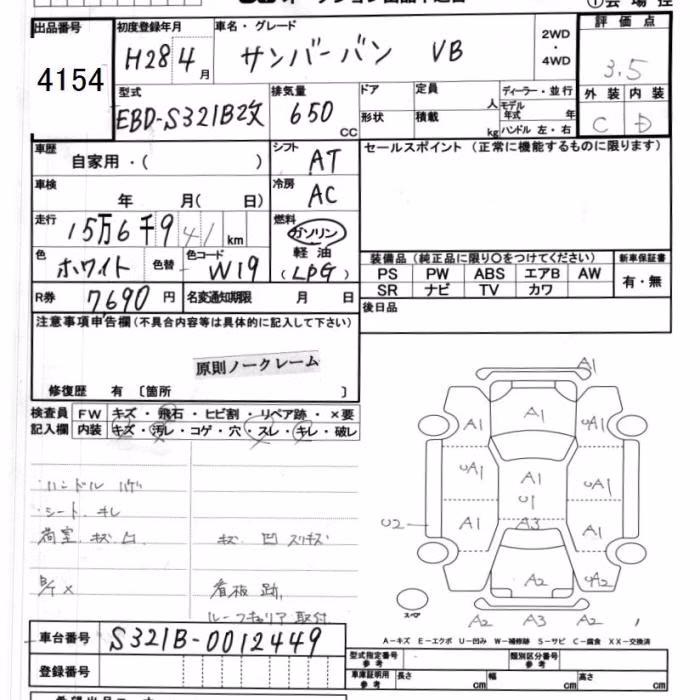 出品番号
4154
初度登録年月
H28 4月
車名・グレード
サンバーバン VB
2WD
・
4WD
評価点
3.5
外装 内装
C D
型式
EBD-S321B2改
排気量
650 CC
ドア
形状
定員 人
積載 kg
ディーラー・並行
モデル年式 年
ハンドル 左・右
車歴
自家用・( )
シフト
AT
セールスポイント (正常に機能するものに限ります)
車検
年 月( 日)
冷房
AC
走行
15万6千941km
燃料
ガソリン
軽油
(LPG)
色
ホワイト
色替
色コード
W19
装備品 (純正品に限り〇をつけてください)
新車保証書
PS PW ABS エアB AW
SR ナビ TV カワ
有・無
R券
7,690円
名変通知期限 月 日
後日品
注意事項申告欄(不具合内容等は具体的に記入して下さい)
原則ノークレーム
修復歴 有 〔箇所 〕
検査員
記入欄
FW キズ・飛石・ヒビ割・リペア跡・×要
内装 キズ・汚レ・コゲ・穴・スレ・キレ・破レ
ハンドル ハゲ
シート キレ
荷室 キズ 凹
キズ 凹 スリキズ
看板跡
ルーフキャリア取付
A1
A1
A1 UA1
UA1 A1 UA1
U1
U2 A1 A3 A1
A2 UA2
スペア
A2 A3 A2
A-キズ E-エクボ U-凹み W-補修跡 S-サビ C-腐食 XX-交換済
車台番号
S321B-0012449
登録番号
型式指定番号
参考
類別区分番号
参考
車庫証明用
参考
長さ cm 幅 cm 高さ cm